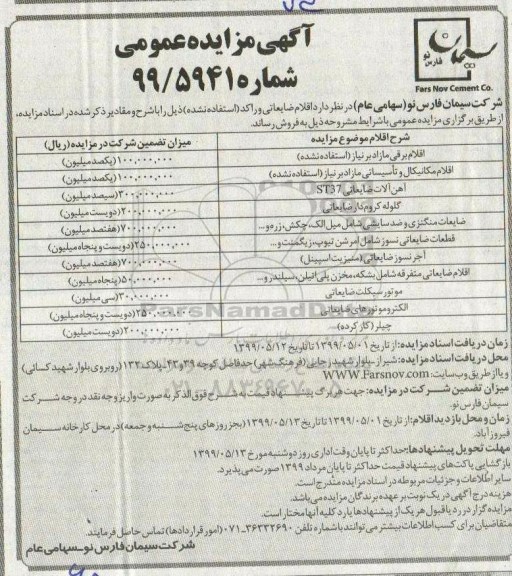 آگهی مزایده عمومی
شماره ۹۹/۵۹۴۱
سیمان
فارس نو
Fars Nov Cement Co.
شرکت سیمان فارس نو (سهامی عام) در نظر دارد اقلام ضایعاتی و راکد (استفاده نشده) ذیل را با شرح و مقادیر ذکر شده در اسناد مزایده،
از طریق برگزاری مزایده عمومی با شرایط مشروحه ذیل به فروش رساند.
شرح اقلام موضوع مزایده میزان تضمین شرکت در مزایده (ریال)
اقلام برقی مازاد بر نیاز (استفاده نشده) ۱۰۰,۰۰۰,۰۰۰ (یکصد میلیون)
اقلام مکانیکال و تأسیساتی مازاد بر نیاز (استفاده نشده) ۱۰۰,۰۰۰,۰۰۰ (یکصد میلیون)
آهن آلات ضایعاتی ST37 ۳۰۰,۰۰۰,۰۰۰ (سیصد میلیون)
گلوله کروم دار ضایعاتی ۲۰۰,۰۰۰,۰۰۰ (دویست میلیون)
ضایعات منگنزی و ضد سایشی شامل میل الک، چکش، زره و... ۷۰۰,۰۰۰,۰۰۰ (هفتصد میلیون)
قطعات ضایعاتی نسوز شامل امرشن تیوپ، زیگمنت و... ۲۵۰,۰۰۰,۰۰۰ (دویست و پنجاه میلیون)
آجر نسوز ضایعاتی (منیزیت اسپینل) ۷۰۰,۰۰۰,۰۰۰ (هفتصد میلیون)
اقلام ضایعاتی متفرقه شامل بشکه، مخزن پلی اتیلن، سیلندر و... ۵۰,۰۰۰,۰۰۰ (پنجاه میلیون)
موتور سیکلت ضایعاتی ۳۰,۰۰۰,۰۰۰ (سی میلیون)
الکتروموتورهای ضایعاتی ۲۵۰,۰۰۰,۰۰۰ (دویست و پنجاه میلیون)
چیلر (کار کرده) ۲۰۰,۰۰۰,۰۰۰ (دویست میلیون)
زمان دریافت اسناد مزایده: از تاریخ ۱۳۹۹/۰۵/۰۱ تا تاریخ ۱۳۹۹/۰۵/۱۲
محل دریافت اسناد مزایده: شیراز - بلوار شهید رجایی (فرهنگ شهر) حد فاصل کوچه ۳۹ و ۴۳ - پلاک ۱۳۲ (روبروی بلوار شهید کسائی)
و یا از طریق وب سایت: WWW.Farsnov.com
میزان تضمین شرکت در مزایده: جهت هر برگ پیشنهاد قیمت به شرح فوق الذکر به صورت واریز وجه نقد در وجه شرکت
سیمان فارس نو.
زمان و محل بازدید اقلام: از تاریخ ۱۳۹۹/۰۵/۰۱ تا تاریخ ۱۳۹۹/۰۵/۱۳ (بجز روزهای پنج شنبه و جمعه) در محل کارخانه سیمان
فیروزآباد.
مهلت تحویل پیشنهادها: حداکثر تا پایان وقت اداری روز دوشنبه مورخ ۱۳۹۹/۰۵/۱۳
بازگشایی پاکت های پیشنهاد قیمت حداکثر تا پایان مرداد ۱۳۹۹ صورت می پذیرد.
سایر اطلاعات و جزئیات مربوطه در اسناد مزایده مندرج است.
هزینه درج آگهی در یک نوبت بر عهده برندگان مزایده می باشد.
مزایده گزار در رد یا قبول هر یک از پیشنهادها یا رد کلیه آنها مختار است.
متقاضیان برای کسب اطلاعات بیشتر می توانند با شماره تلفن ۳۶۳۳۲۶۹۰-۰۷۱ (امور قراردادها) تماس حاصل فرمایند.
شرکت سیمان فارس نو - سهامی عام
ParsNamadData
۰۲۱-۸۸۳۴۹۶۷۰